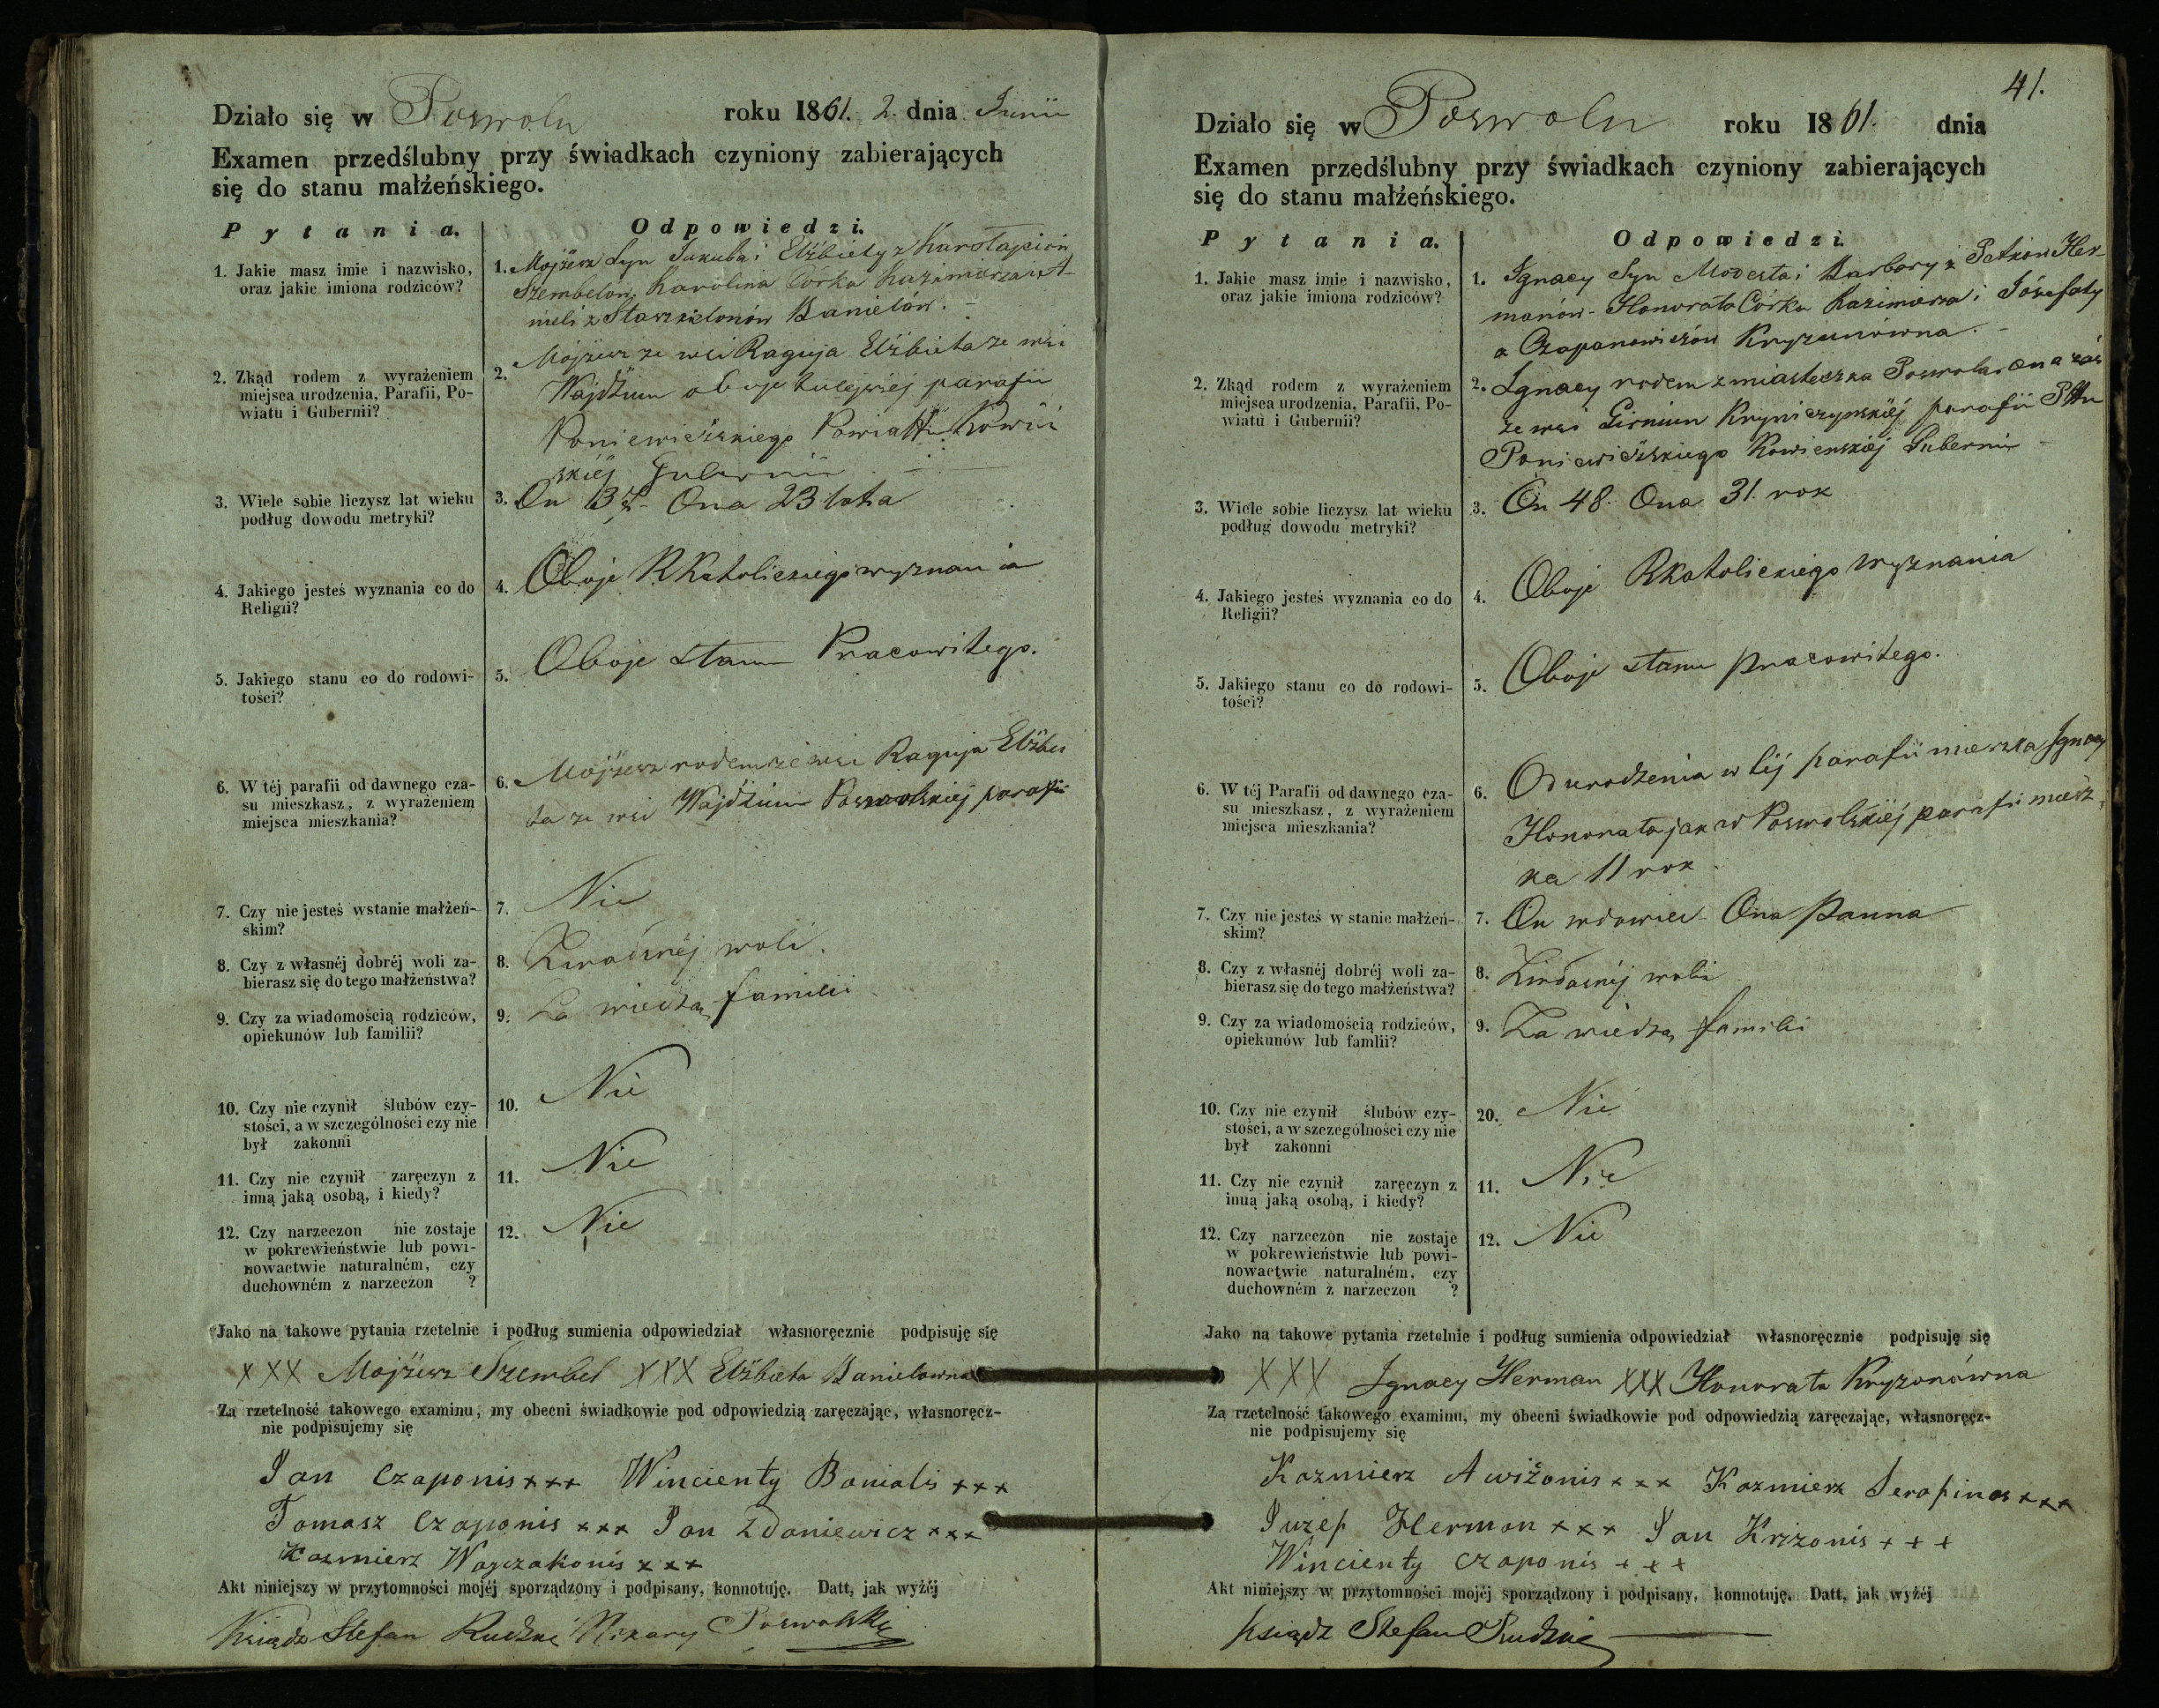 Działo się w Poswolu roku 1861. 2. dnia Junii
Examen przedślubny przy świadkach czyniony zabierających
się do stanu małżeńskiego.
Pytania. Odpowiedzi.
1. Jakie masz imie i nazwisko,
oraz jakie imiona rodziców?
1. Mojżesz Syn Jakuba i Elżbiety z
Szembelów, Karolina Córka Kazimierza i A-
meli z Danielów.
2. Zkąd rodem z wyrażeniem
miejsca urodzenia, Parafii, Po-
wiatu i Gubernii?
2. Mojżesz ze wsi Raguja Elżbieta ze wsi
Wajdżiun oboje tutejszej parafii
Poniewieżskiego Powiattu Kowień
skiéj Gubernii
3. Wiele sobie liczysz lat wieku
podług dowodu metryki?
3. On 37- Ona 23 lata
4. Jakiego jesteś wyznania co do
Religii?
4. Oboje RKatolickiego wyznania
5. Jakiego stanu co do rodowi-
tości?
5. Oboje stanu Pracowitego.
6. W téj parafii od dawnego cza-
su mieszkasz, z wyrażeniem
miejsca mieszkania?
6. Mojżesz rodem ze wsi Raguja Elżbie
ta ze wsi Wajdżiun Poswolskiej parafii
7. Czy nie jesteś wstanie małżeń-
skim?
7. Nie
8. Czy z własnéj dobréj woli za-
bierasz się do tego małżeństwa?
8. Zwłasnéj woli.
9. Czy za wiadomością rodziców,
opiekunów lub familii?
9. Za wiedzą familii
10. Czy nie czynił ślubów czy-
stości, a w szczególności czy nie
był zakonni
10. Nie
11. Czy nie czynił zaręczyn z
inną jaką osobą, i kiedy?
11. Nie
12. Czy narzeczon nie zostaje
w pokrewieństwie lub powi-
nowactwie naturalném, czy
duchowném z narzeczon ?
12. Nie
Jako na takowe pytania rzetelnie i podług sumienia odpowiedział własnoręcznie podpisuję się
XXX Mojżesz Szembel XXX Elżbieta Danielowna
Za rzetelność takowego examinu, my obecni świadkowie pod odpowiedzią zaręczając, własnoręcz-
nie podpisujemy się
Jan Czaponis xxx Wincienty Banialis xxx
Tomasz Czaponis xxx Jan Zdaniewicz xxx
Kazmierz xxx
Akt niniejszy w przytomności mojéj sporządzony i podpisany, konnotuję. Datt, jak wyżéj
Ksiądz Stefan Rudźki Wikary Poswolski
41.
Działo się w Poswolu roku 1861. dnia
Examen przedślubny przy świadkach czyniony zabierających
się do stanu małżeńskiego.
Pytania. Odpowiedzi.
1. Jakie masz imie i nazwisko,
oraz jakie imiona rodziców?
1. Ignacy Syn Modesta i Barbary z Her-
manów- Honorata Córka Kazimierza i Józefaty
z Czapanowiczów Kryzanówna.
2. Zkąd rodem z wyrażeniem
miejsca urodzenia, Parafii, Po-
wiatu i Gubernii?
2. Ignacy rodem z miasteczka Poswola, ona zaś
ze wsi Girniun parafii Pttu
Poniewieżskiego Kowienskiéj Gubernii
3. Wiele sobie liczysz lat wieku
podług dowodu metryki?
3. On 48. Ona 31. rok
4. Jakiego jesteś wyznania co do
Religii?
4. Oboje Rkatolickiego Wyznania
5. Jakiego stanu co do rodowi-
tości?
5. Oboje stanu pracowitego.
6. W téj Parafii od dawnego cza-
su mieszkasz, z wyrażeniem
miejsca mieszkania?
6. Od urodzenia w téj parafii mieszka Ignacy
Honorata jak w Poswolskiéj parafii miesz,
ka 11 rok.
7. Czy nie jesteś w stanie małżeń-
skim?
7. On wdowiec- Ona panna
8. Czy z własnéj dobréj woli za-
bierasz się do tego małżeństwa?
8. Zwłasnéj woli
9. Czy za wiadomością rodziców,
opiekunów lub famlii?
9. Za wiedzą familii
10. Czy nie czynił ślubów czy-
stości, a w szczególności czy nie
był zakonni
20. Nie
11. Czy nie czynił zaręczyn z
inuą jaką osobą, i kiedy?
11. Nie
12. Czy narzeczon nie zostaje
w pokrewieństwie lub powi-
nowactwie naturalném, czy
duchowném z narzeczon ?
12. Nie
Jako na takowe pytania rzetelnie i podług sumienia odpowiedział własnoręcznie podpisuję się
XXX Ignacy Herman XXX Honorata Kryzonówna
Za rzetelność takowego examinu, my obecni świadkowie pod odpowiedzią zaręczając, własnoręcz-
nie podpisujemy się
Kazmierz Awiżonis xxx Kazmierz Serafinas xxx
Juzef Herman xxx Jan Kriżonis +++
Wincienty Czaponis +++
Akt niniejszy w przytomności mojéj sporządzony i podpisany, konnotuję. Datt, jak wyżéj
Ksiądz Stefan Rudźki